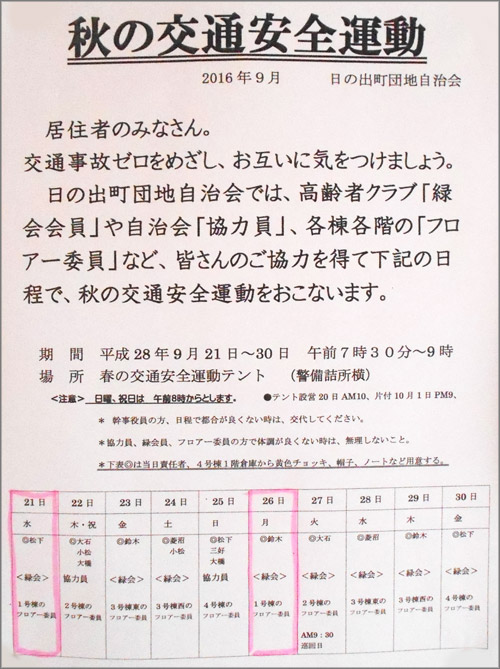 秋の交通安全運動
2016年9月 日の出町団地自治会
居住者のみなさん。
交通事故ゼロをめざし、お互いに気をつけましょう。
日の出町団地自治会では、高齢者クラブ「緑
会会員」や自治会「協力員」、各棟各階の「フロ
アー委員」など、皆さんのご協力を得て下記の日
程で、秋の交通安全運動をおこないます。
期 間 平成28年9月21日～30日 午前7時30分～9時
場 所 春の交通安全運動テント （警備詰所横）
<注意> 日曜、祝日は 午前8時からとします。 ●テント設営20日AM10、片付10月1日PM9、
* 幹事役員の方、日程で都合が良くない時は、交代してください。
*協力員、緑会員、フロアー委員の方で体調が良くない時は、無理しないこと。
*下表◎は当日責任者、4号棟1階倉庫から黄色チョッキ、帽子、ノートなど用意する。
21日 22日 23日 24日 25日 26日 27日 28日 29日 30日
水 木・祝 金 土 日 月 火 水 木 金
◎松下 ◎大石 ◎鈴木 ◎菱沼 ◎松下 ◎鈴木 ◎大石 ◎菱沼 ◎鈴木 ◎松下
小松 小松 三好
大橋 大橋
<緑会> 協力員 <緑会> <緑会> 協力員 <緑会> <緑会> <緑会> <緑会> <緑会>
1号棟の 2号棟の 3号棟東の 3号棟西の 4号棟の 1号棟の 2号棟の 3号棟東の 3号棟西の 4号棟の
フロアー委員 フロアー委員 フロアー委員 フロアー委員 フロアー委員 フロアー委員 フロアー委員 フロアー委員 フロアー委員 フロアー委員
AM9:30
巡回日